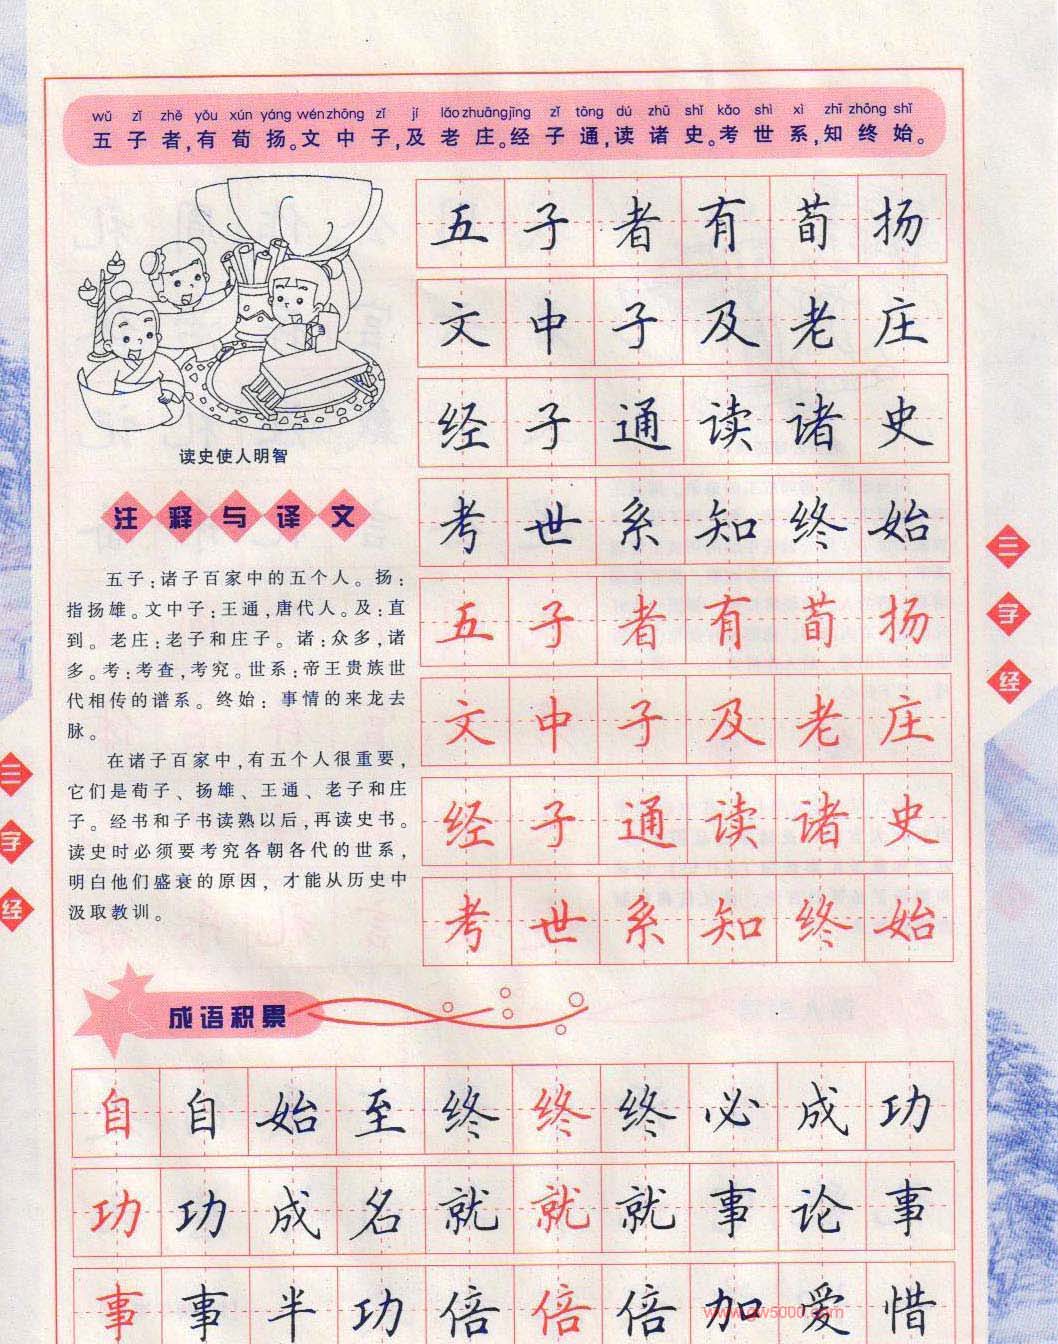 wǔ zǐ zhě yǒu xún yáng wén zhōng zǐ jí lǎo zhuāng jīng zǐ tōng dú zhū shǐ kǎo shì xì zhī zhōng shǐ
五子者,有荀扬。文中子,及老庄。经子通,读诸史。考世系,知终始。
五子者有荀扬
文中子及老庄
经子通读诸史
考世系知终始
五子者有荀扬
文中子及老庄
经子通读诸史
考世系知终始
读史使人明智
注释与译文
五子:诸子百家中的五个人。扬:
指扬雄。文中子:王通,唐代人。及:直
到。老庄:老子和庄子。诸:众多,诸
多。考:考查,考究。世系:帝王贵族世
代相传的谱系。终始:事情的来龙去
脉。
在诸子百家中,有五个人很重要,
它们是荀子、扬雄、王通、老子和庄
子。经书和子书读熟以后,再读史书。
读史时必须要考究各朝各代的世系,
明白他们盛衰的原因,才能从历史中
汲取教训。
三字经
三字经
成语积累
自自始至终终终必成功
功功成名就就就事论事
事事半功倍倍倍加爱惜
www.gw5000.com